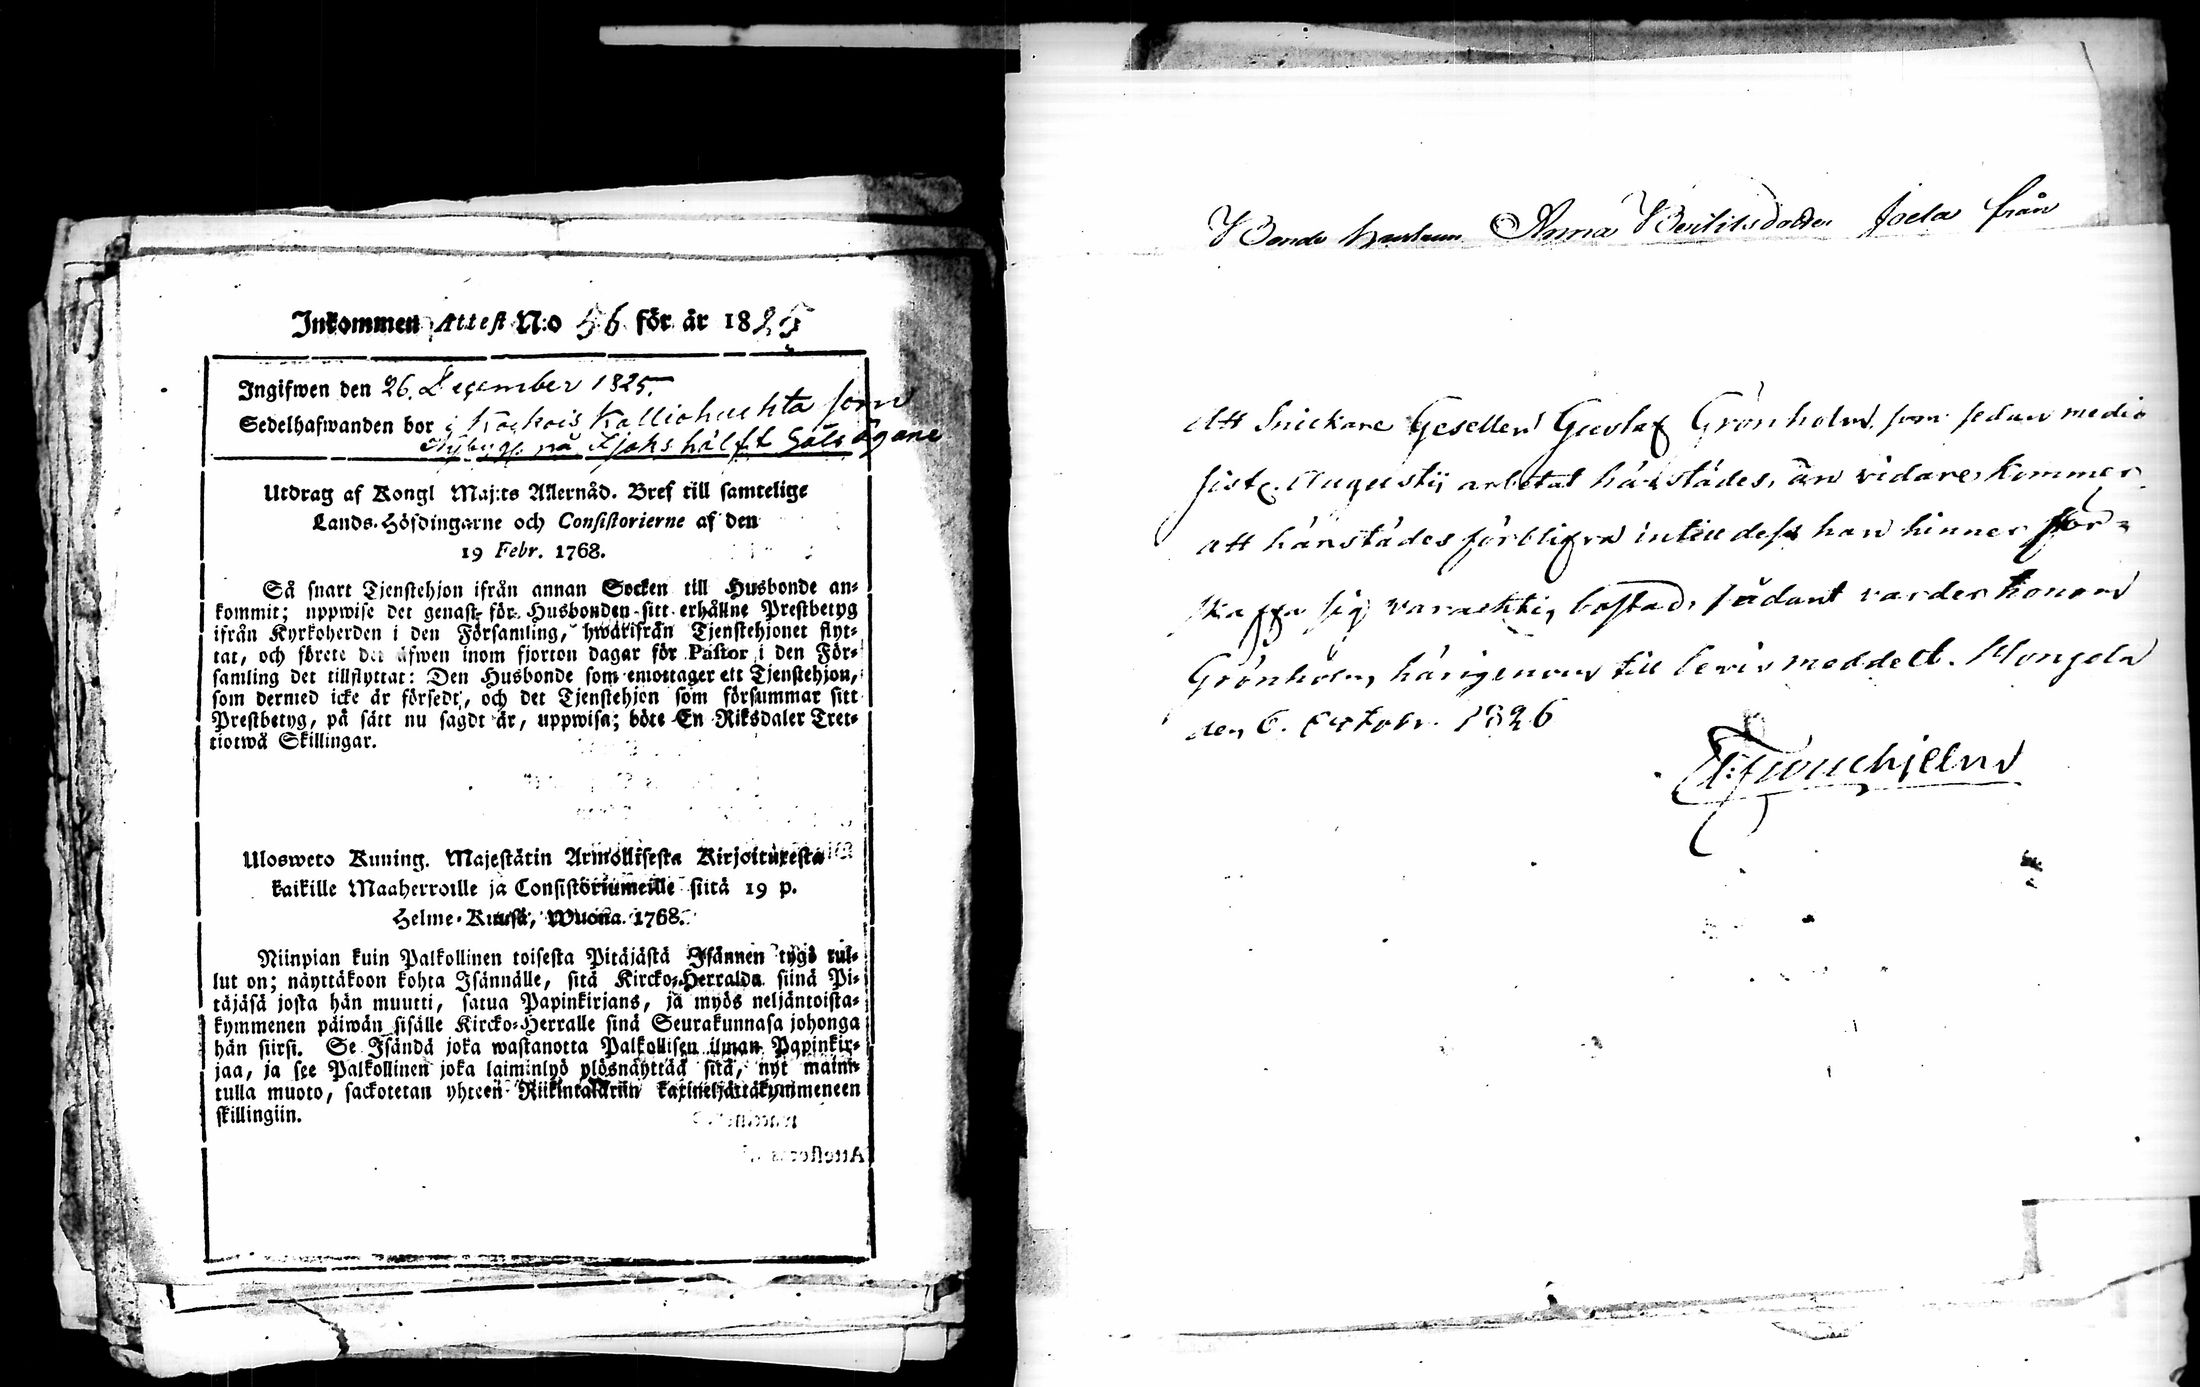 Inkommen Attest N:o 56 för år 1825
Ingifwen den 26. December 1825.
Sedelhafwanden bor i Kalliohuhta som
på hälft ägare
Utdrag af Kongl Maj:ts Allernåd. Bref till samtelige
Lands-Höfdingarne och Consistorierne af den
19 Febr. 1768.
Så snart Tjenstehjon ifrån annan Socken till Husbonde an-
kommit; uppwise det genast för Husbonden sitt erhållne Prestbetyg
ifrån Kyrkoherden i den Församling, hwarifrån Tjenstehjonet flyt-
tat, och förete det äfwen inom fjorton dagar för Pastor i den För-
samling det tillflyttat: Den Husbonde som emottager ett Tjenstehjon,
som dermed icke är försedt, och det Tjenstehjon som försummar sitt
Prestbetyg, på sätt nu sagdt är, uppwisa; böte En Riksdaler Tret-
tiotwå Skillingar.
Ulosweto Kuning. Majestätin Armollisesta Kirjoituxesta
kaikille Maaherroille ja Consistoriumeille siitä 19 p.
Helme-Kuusa, Wuona 1768.
Niinpian kuin Palkollinen toisesta Pitäjästä Isännen tygö tul-
lut on; näyttäkoon kohta Isännälle, sitä Kircko-Herralda siinä Pi-
täjäsä josta hän muutti, satua Papinkirjans, ja myös neljäntoista-
kymmenen päiwän sisälle Kircko-Herralle sinä Seurakunnasa johonga
hän siirsi. Se Isändä joka wastanotta Palkollisen ilman Papinkir-
jaa, ja see Palkollinen joka laiminlyö ylösnäyttää sitä, nyt maini-
tulla muoto, sackotetan yhteen Riikintalariin kaxineljättäkymmeneen
skillingiin.
Bonde hustrun Anna Bertilsdotter från
Att Snickare Gesellen Gustaf Grönholm, som sedan medio
sistl. Augustij arbetat härstädes, än vidare kommer
att härstädes förblifva intill dess han hinner för-
skaffa sig varaktig bostad, sådant varder honom
Grönholm, härigenom till bevis meddelt. Mongola
den 6. October 1826